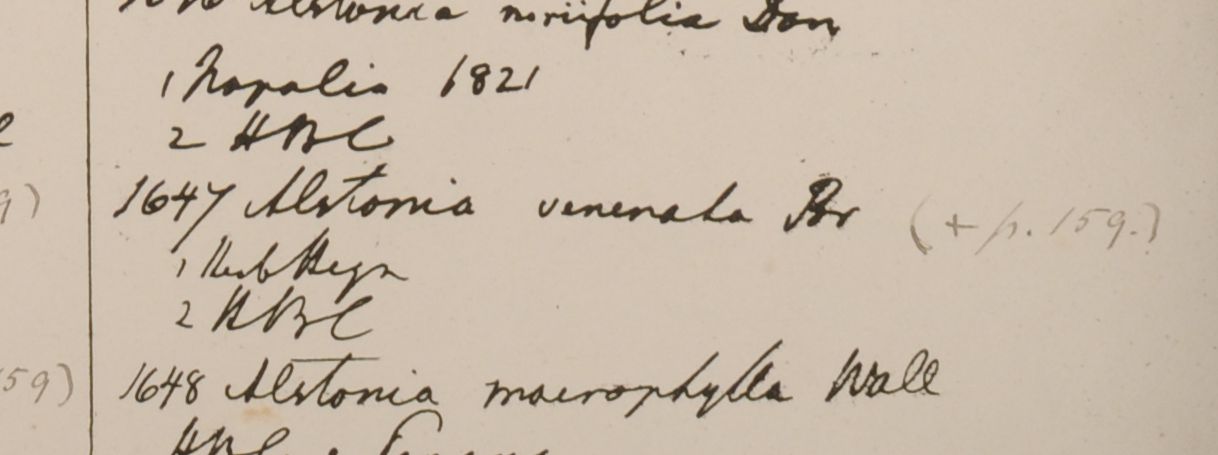 Alstonia neriifolia Don
1 Napalia 1821
2 HBC
9)
1647 Alstonia venenata Br (+ p. 159.)
1 Herb Heyn
2 HBC
59)
1648 Alstonia macrophylla Wall
HBC